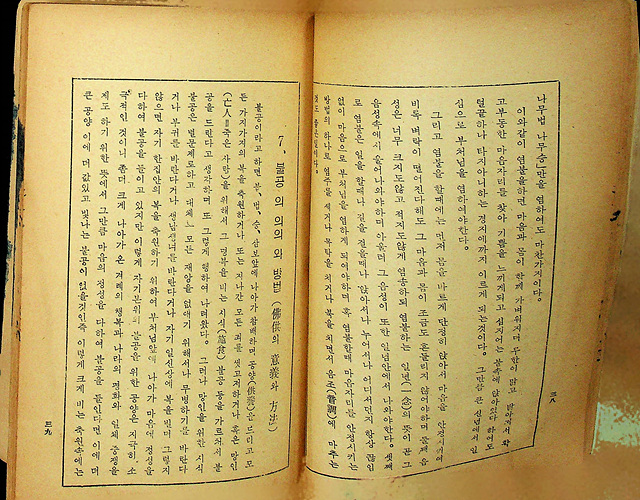 나무법 나무승」만을 염하여도 마찬가지이다.
이와같이 염불을하면 마음과 몸이 함께 가벼워지며 무한이 맑고 맑아져서 확
고부동한 마음자리를 찾아 기쁨을 느끼게되고 심지어는 불속에 앉아있다 하여도
털끝하나 타지아니하는 경지에까지 이르게 되는것이다. 그만큼 큰 신념에서 일
심으로 부처님을 염하여야한다.
그리고 염불을 할때에는 먼저 몸을 바르게 단정히 앉아서 마음을 안정시키여
비록 벼락이 떨어진다해도 그 마음과 몸이 조금도 흔들리지 않어야하며 둘째 음
성은 너무 크지도않고 적지도않게 염송하되 염불하는 일념(一念)의 뜻이 곧 그
음성속에서 울어나와야하며 아울러 그 음성이 또한 일념안에서 나와야한다. 셋째
로 염불은 일을 할때나 길을 걸을때나 앉아서나 누어서나 어디서던지 항상 끊임
없이 마음으로 부처님을 염하게 되여야하며 혹 염불할때 마음자리를 안정시키는
방법의 하나로 염주를 세거나 목탁을 치거나 북을 치면서 음조(音調)에 마추는
것도 좋은일이다.
三八
7. 불공의 의의와 방법 (佛供의 意義와 方法)
불공이라고 하면 불, 법, 승, 삼보앞에 나아가 참례하며 공양(供養)을 드리고 모
든 가지가지의 복을 축원하거나 또는 지나간 모든 죄를 씻고저하거나 혹은 망인
(亡人=죽은 사람)을 위해서 그 명부을 비는 시식(施食) 불공 등을 가르켜서 불
공을 드린다고 생각하며 또 그렇게 행하여 나려왔다. 그러나 망인을 위한 시식
불공은 별문제로하고 대체로 모든 재앙을 없애기 위해서나 무병하기를 바란다
거나 부귀를 바란다거나 생남생녀를 바란다거나 자기 일신상에 복을 빌며 그렇지
않으면 자기 한집안의 복을 축원하기 위하여 부처님앞에 나아가 마음에 정성을
다하여 불공을 들이고 있지만 이렇게 자기본위의 불공을 위한 공양은 지극히 소
극적인 것이니 좀더 크게 나아가 온 겨레의 행복과 나라의 평화와 일체 중생을
제도 하기 위한 뜻에서 그만큼 마음의 정성을 다하여 불공을 들인다면 이에 더
큰 공양 이에 더 값있고 빛나는 불공이 없을것인즉 이렇게 크게 비는 축원속에는
三九